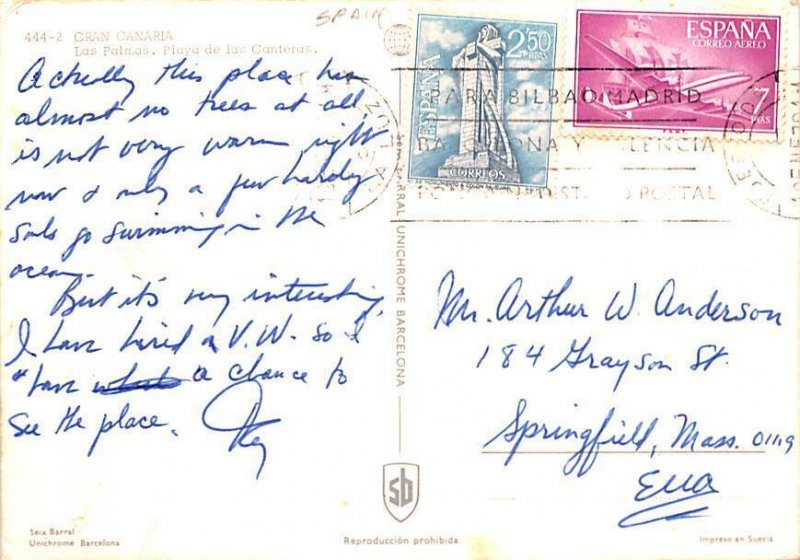 SPAIN
444-2 GRAN CANARIA
Las Palmas. Playa de las Canteras.
Actually this place has
almost no trees at all,
is not very warm right
now & only a few hardy
souls go swimming in the
ocean.
But it's very interesting,
I have hired a V.W. so I
have a chance to
see the place.
ESPAÑA
2'50
PTAS
CORREOS
ESPAÑA
CORREO AÉREO
7
PTAS
PARA BILBAO MADRID
BARCELONA Y VALENCIA
DISTRITO POSTAL
Seix BARRAL UNICHROME BARCELONA
Mr. Arthur W. Anderson
184 Grayson St.
Springfield, Mass. 01119
EUA
sb
Seix Barral
Unichrome Barcelona
Reproducción prohibida
Impreso en Suecia